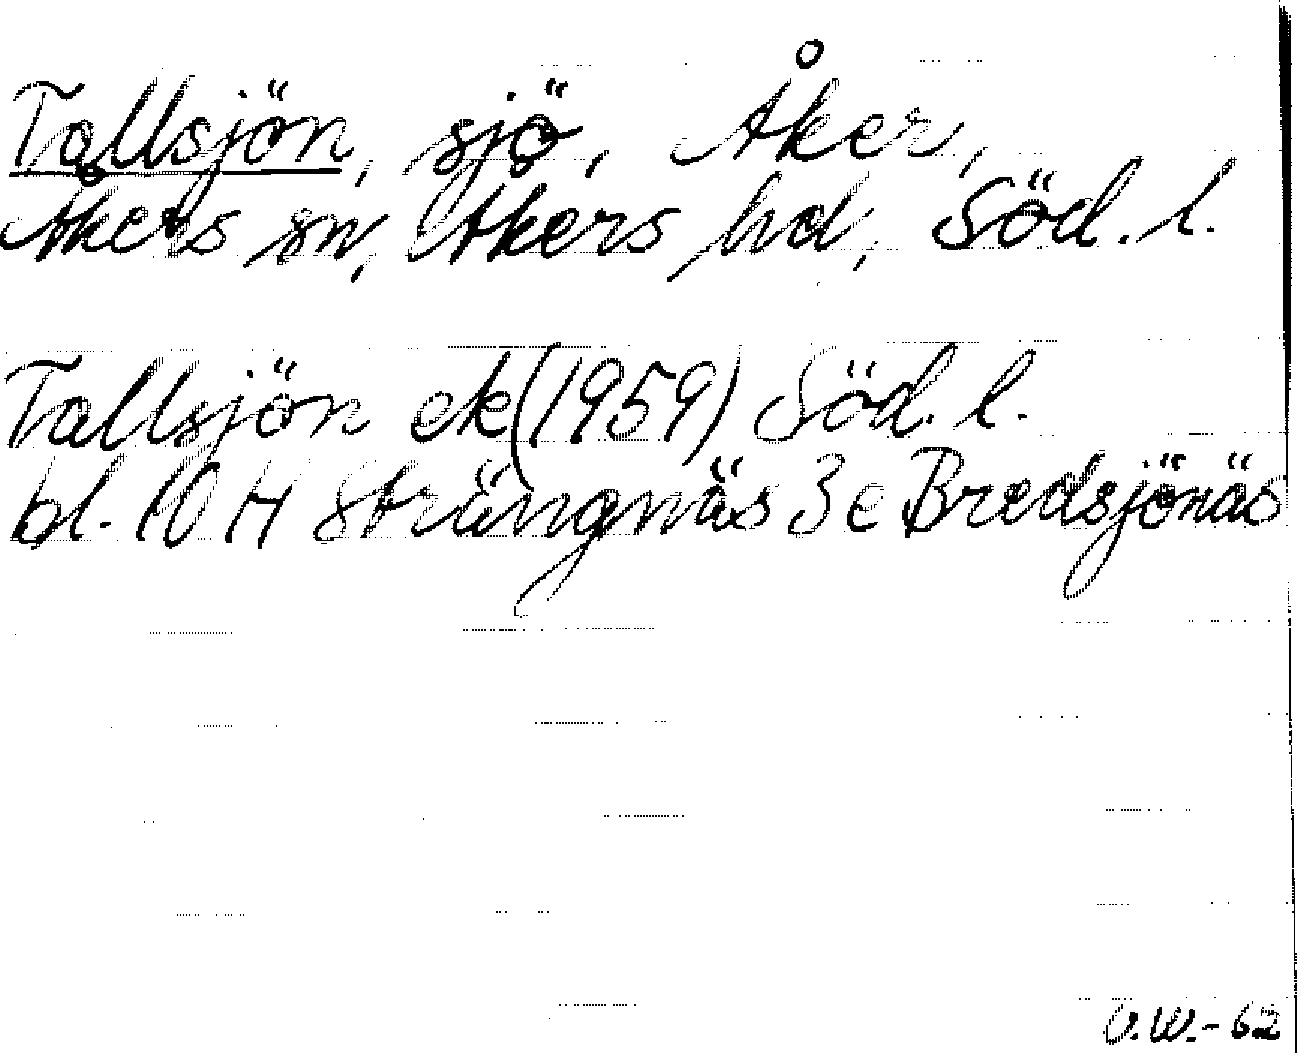 Tallsjön, sjö, Åker,
Åkers sn, Åkers hd, Söd. l.
Tallsjön ek (1959) Söd. l.
bl. 10 H Strängnäs 3 e Bredsjönäs
V.W.-62